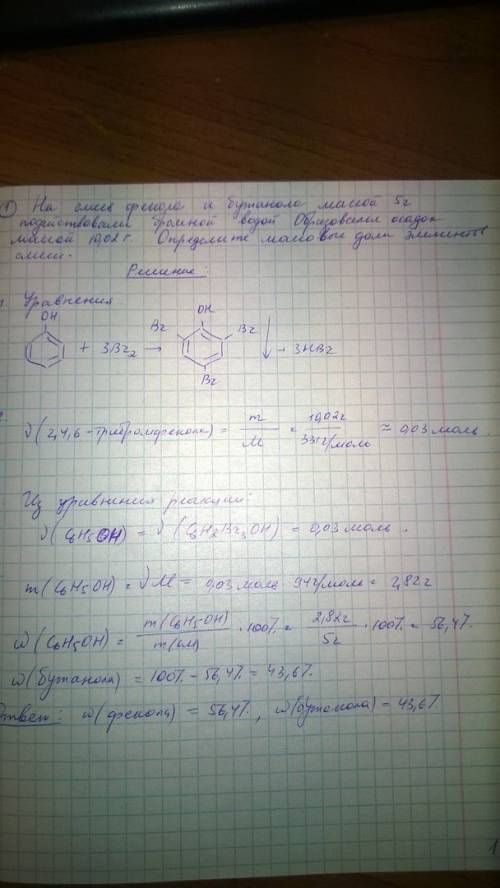 ① На смесь фенола и бутанола массой 5г
подействовали бромной водой Образовался осадок
массой 10,02 г. Определите массовые доли элементов
смеси.
Решение:
Уравнения
OH
OH
Br
Br
+ 3Br2 → ↓ + 3HBr
Br
ν(2,4,6-трибромфенола) = m/M = 10,02г/331г/моль ≈ 0,03 моль
Из уравнения реакции:
ν(C6H5OH) = ν(C6H2Br3OH) = 0,03 моль.
m(C6H5OH) = νM = 0,03 моль 94г/моль = 2,82 г
ω(C6H5OH) = m(C6H5OH)/m(см) · 100% = 2,82г/5г · 100% = 56,4%
ω(бутанола) = 100% - 56,4% = 43,6%
Ответ: ω(фенола) = 56,4%, ω(бутанола) = 43,6%
1